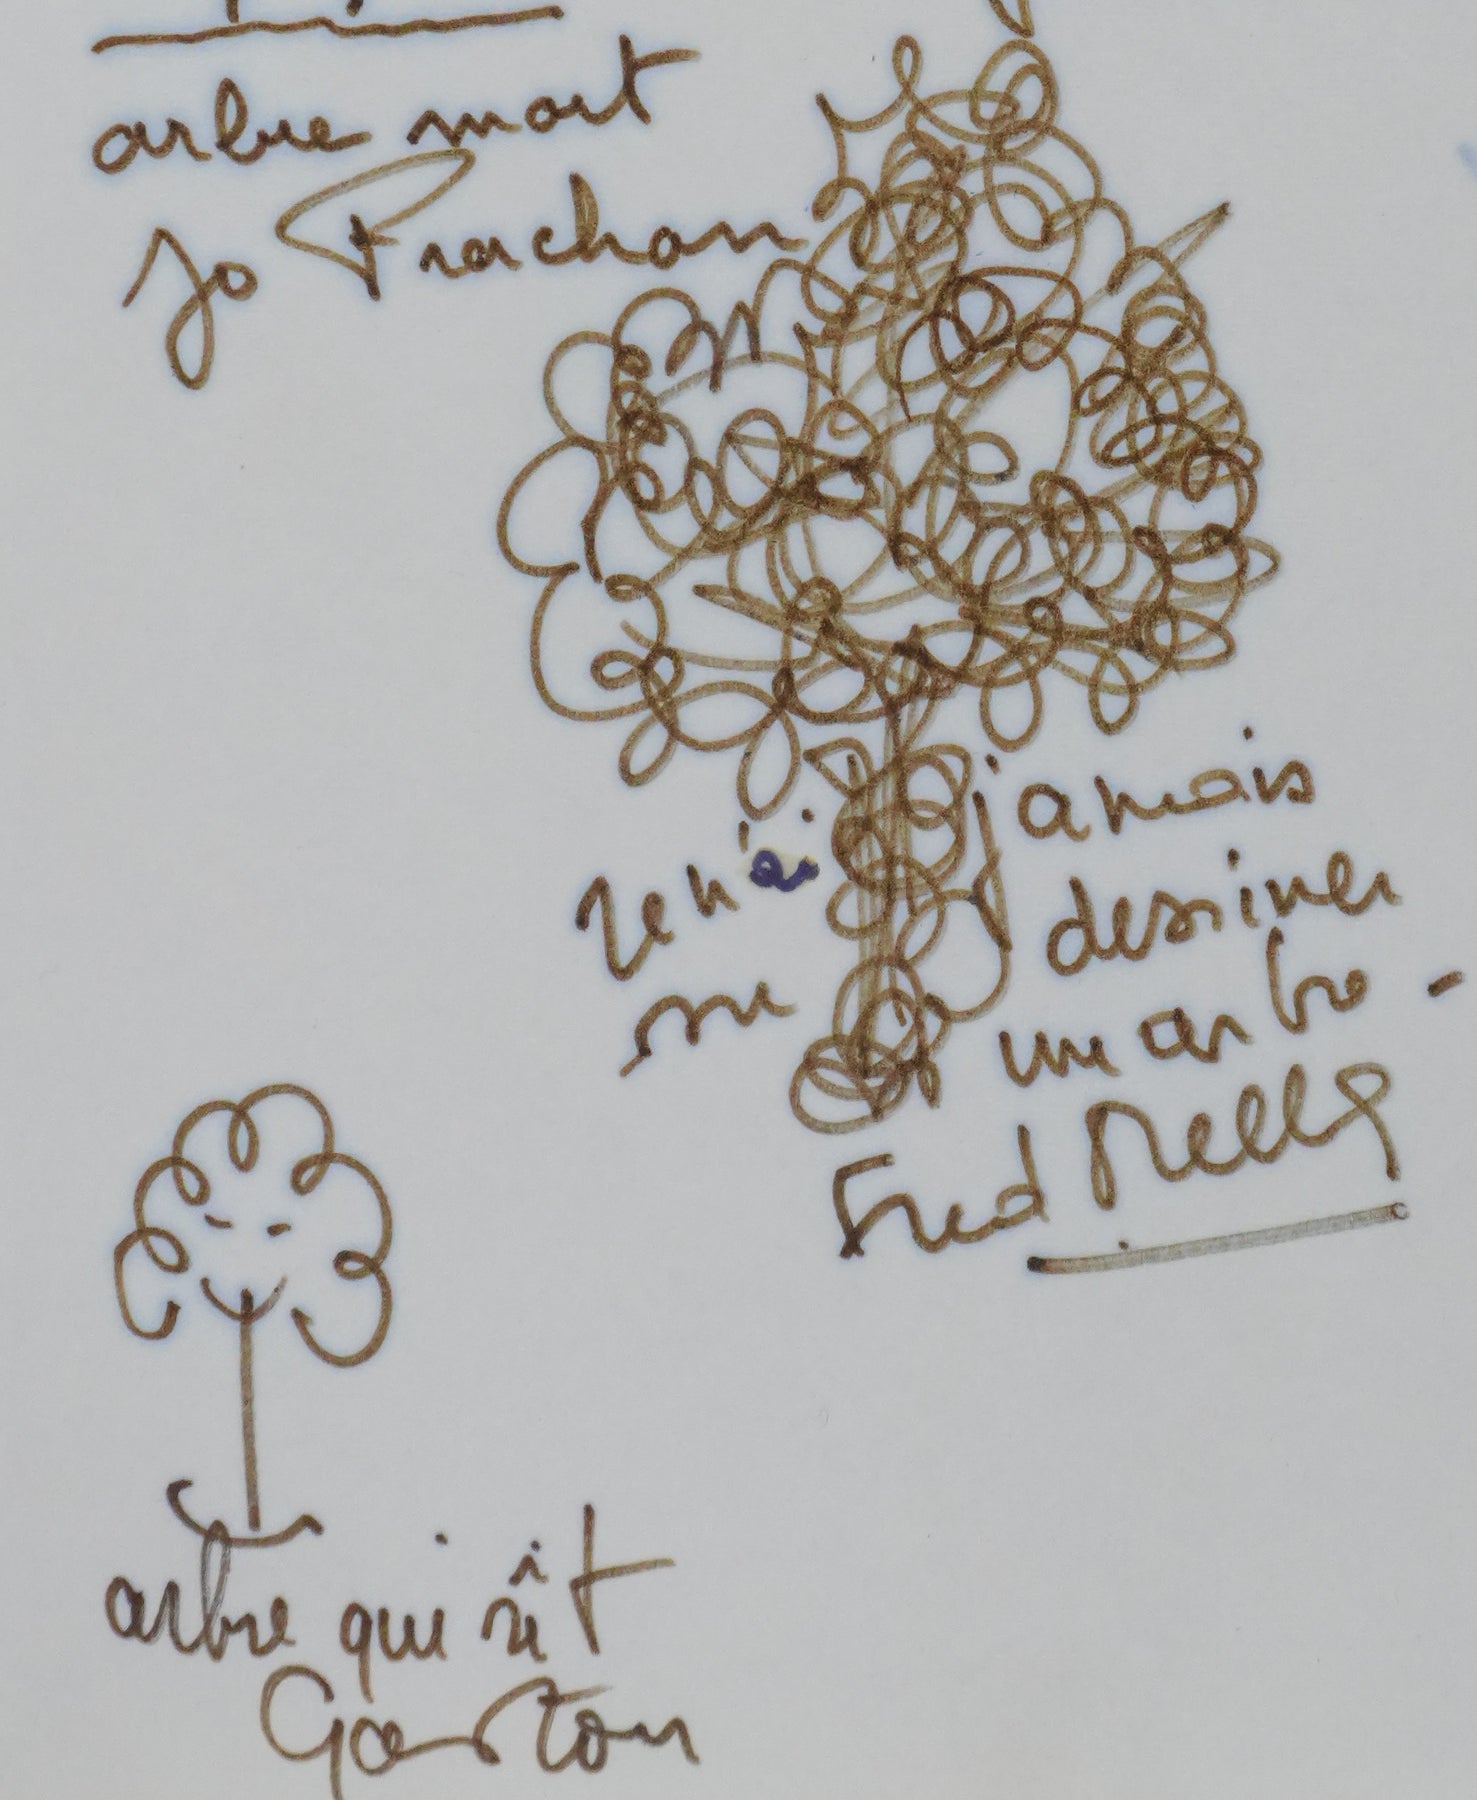 arbre mort
Jo Prachan
je n'ai jamais
su dessiner
un arbre -
Fred Mella
arbre qui rît
Gaston